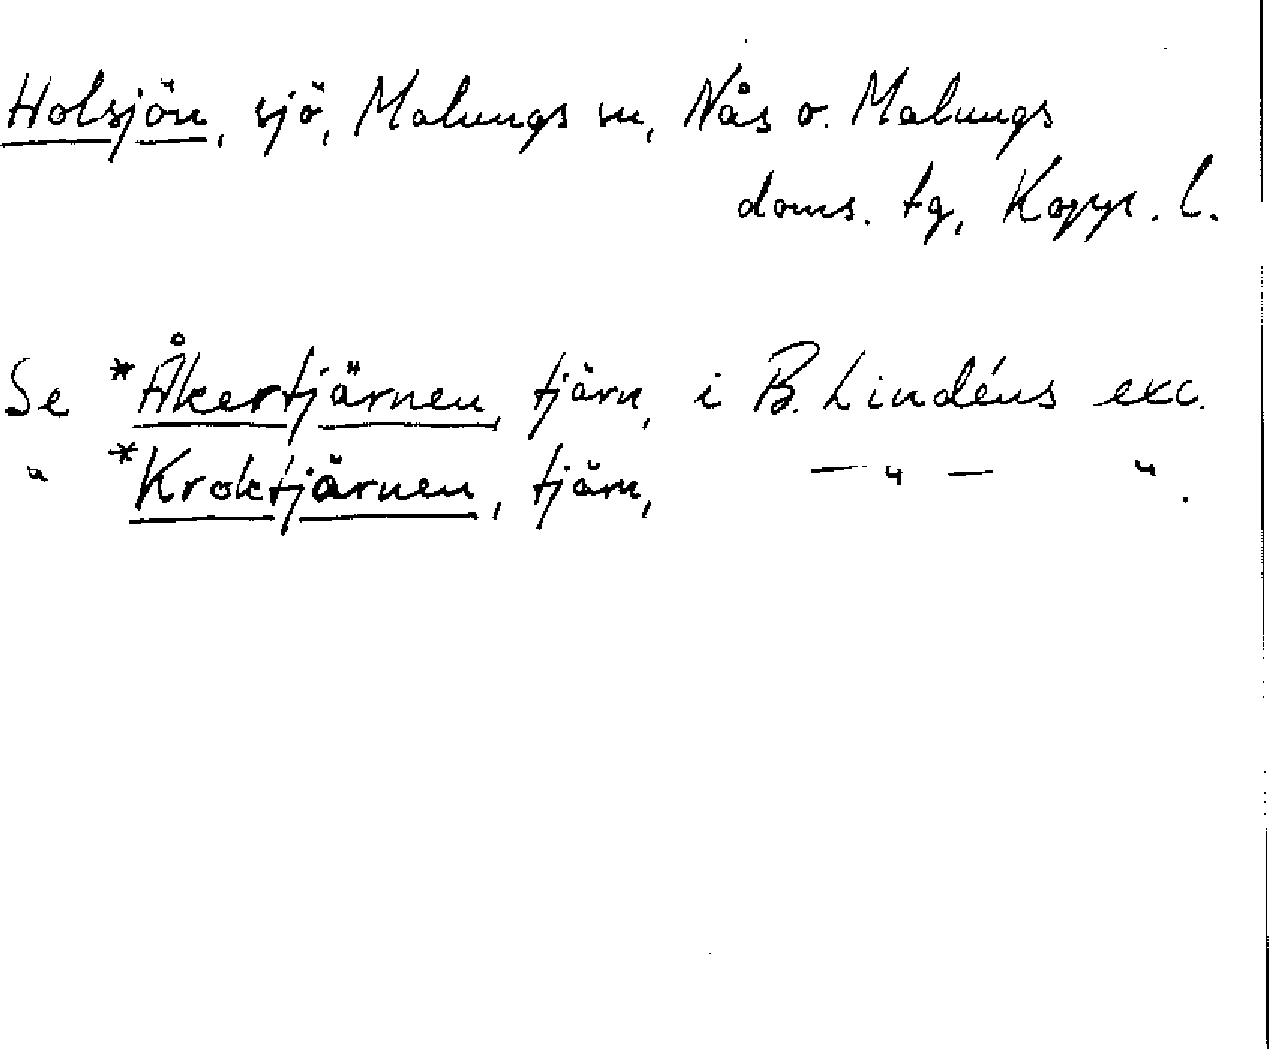 Holsjön, sjö, Malungs sn, Nås o. Malungs
doms. tg, Kopp. l.
Se *Åkertjärnen, tjärn, i B. Lindéns exc.
" *Kroktjärnen, tjärn, — " — ".